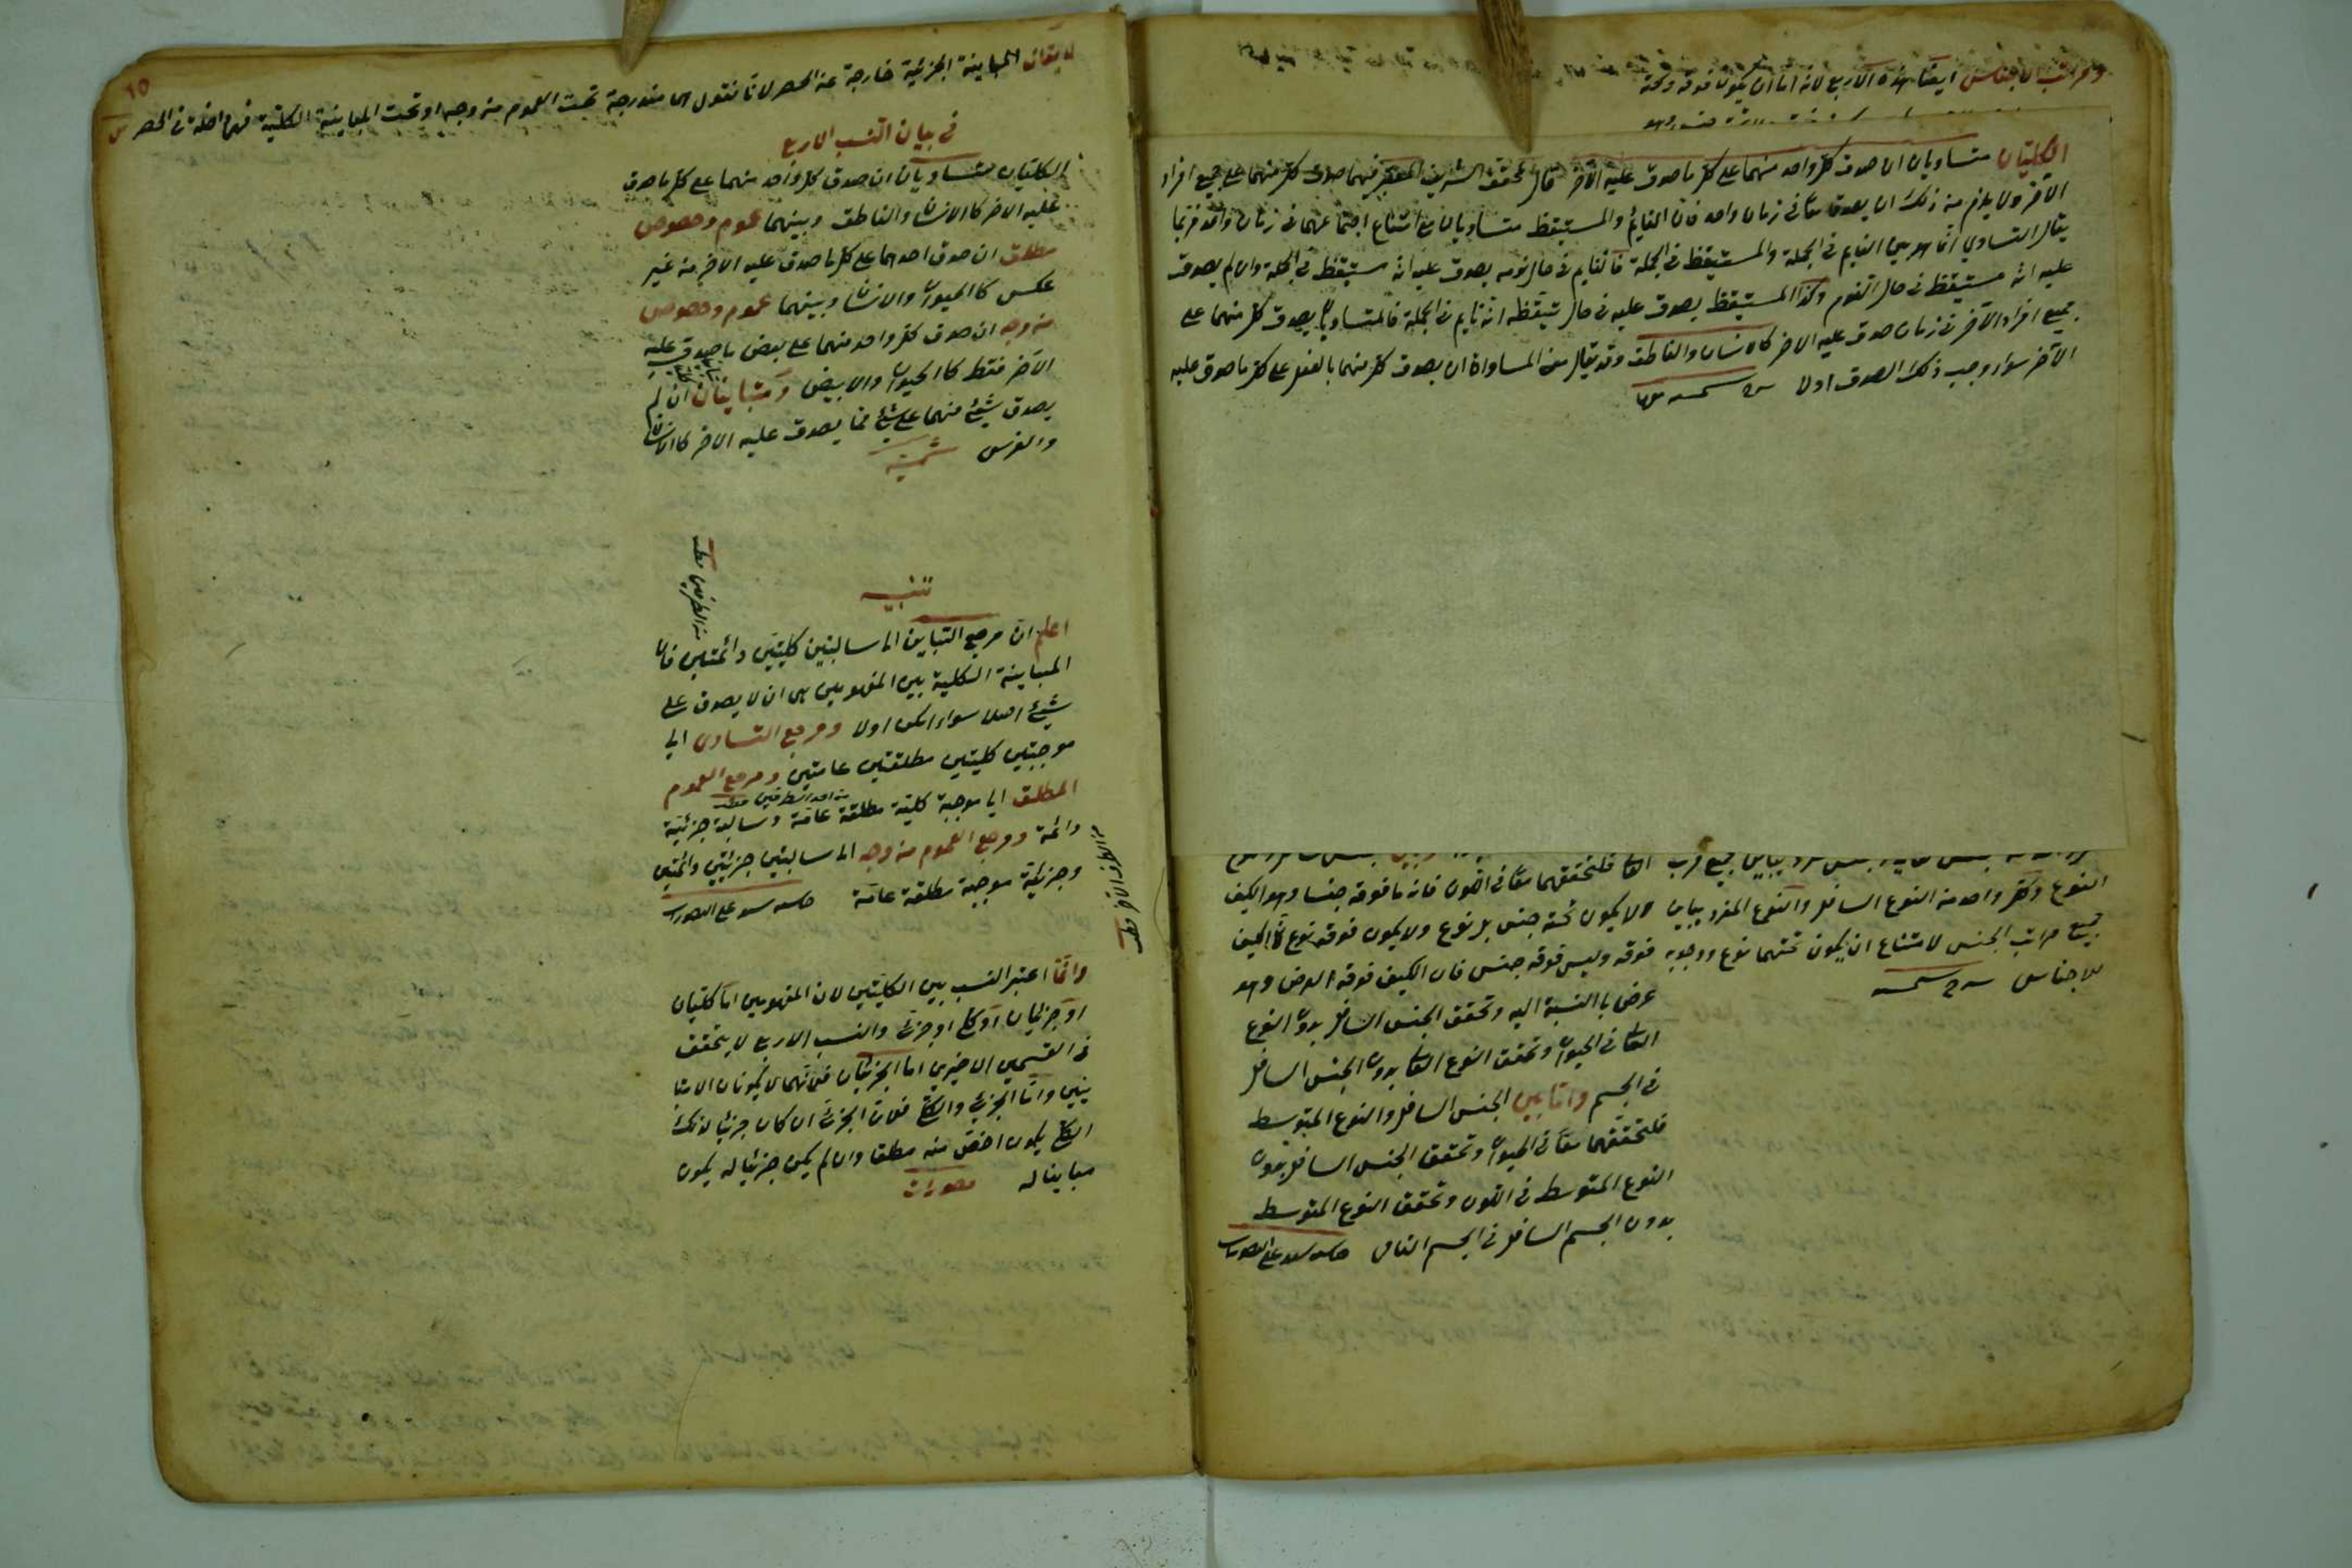 ومراتب الاجناس ايضا هذه الاربع لانه اما ان يكون فوقه وتحته
الكليتان متساويان ان صدق كل واحد منهما على كل ما صدق عليه الآخر قال المحقق الشريف المعتبر فيهما صدق كل منهما على جميع افراد
الآخر ولا يلزم من ذلك ان يصدقا معا في زمان واحد فان النايم والمستيقظ متساويان مع امتناع اجتماعهما في زمان واحد فربما
يقال التساوي انما هو بين النايم في الجملة والمستيقظ في الجملة فالنايم في حال نومه يصدق عليه انه مستيقظ في الجملة وان لم يصدق
عليه انه مستيقظ في حال النوم وكذا المستيقظ يصدق عليه في حال تيقظه انه نايم في الجملة فالمتساويان يصدق كل منهما على
جميع افراد الآخر في زمان صدق عليه الاخر كالانسان والناطق وقد يقال معنى المساواة ان يصدق كل منهما بالفعل على كل ما صدق عليه
الآخر سواء وجب ذلك الصدق اولا
فلتحققهما معا في اللون فان ما فوقه جنسا وهو الكيف
النوع وكل واحد من النوع السافل والنوع المفرد يباين ولا يكون تحته جنس بل نوع ولا يكون فوقه نوع
جميع مراتب الجنس لامتناع ان يكون تحتهما نوع ووجوبه فوقه وليس فوقه جنس فان الكيف فوقه العرض وهو
للاجناس
عرض بالنسبة اليه وتحقق الجنس السافل بدون النوع
العالي في الحيوان وتحقق النوع العالي بدون الجنس السافل
في الجسم واما بين الجنس السافل والنوع المتوسط
فلتحققهما معا في الحيوان وتحقق الجنس السافل بدون
النوع المتوسط في اللون وتحقق النوع المتوسط
بدون الجسم السافل في الجسم النامي
٦٥
لا يقال المباينة الجزئية خارجة عن الحصر لانا نقول هى مندرجة تحت العموم من وجه او تحت المباينة الكلية فهى داخلة في الحصر
في بيان النسب الاربع
الكليتان متساويان ان صدق كل واحد منهما على كل ما صدق
عليه الاخر كالانسان والناطق وبينهما عموم وخصوص
مطلق ان صدق احدهما على كل ما صدق عليه الاخر من غير
عكس كالحيوان والانسان وبينهما عموم وخصوص
من وجه ان صدق كل واحد منهما على بعض ما صدق عليه
الآخر فقط كالحيوان والابيض ومتباينان ان لم
يصدق شيئ منهما على شيئ مما يصدق عليه الاخر كالانسان
والفرس شمسية
تنبيه
من الطرفين
اعلم ان مرجع التباين الى سالبتين كليتين دائمتين فان
المباينة الكلية بين المفهومين هى ان لا يصدق على
شيئ اصلا سواء امكن اولا ومرجع التساوى الى
موجبتين كليتين مطلقتين عامتين ومرجع العموم
من احد الطرفين
المطلق الى موجبة كلية مطلقة عامة وسالبة جزئية
دائمة ومرجع العموم من وجه الى سالبتين جزئيتين دائمتين
وجزئية موجبة مطلقة عامة
من الطرف الآخر
وانما اعتبر النسب بين الكليتين لان المفهومين اما كليتان
او جزئيان او كلي او جزئي والنسب الاربع لا يتحقق
في القسمين الاخيرين اما الجزئيان فلانهما لا يكونان الا متبا
ينين واما الجزئي والكلي فلان الجزئي ان كان جزئيا لذلك
الكلي يكون اخص منه مطلقا وان لم يكن جزئيا له يكون
مباينا له تصورات